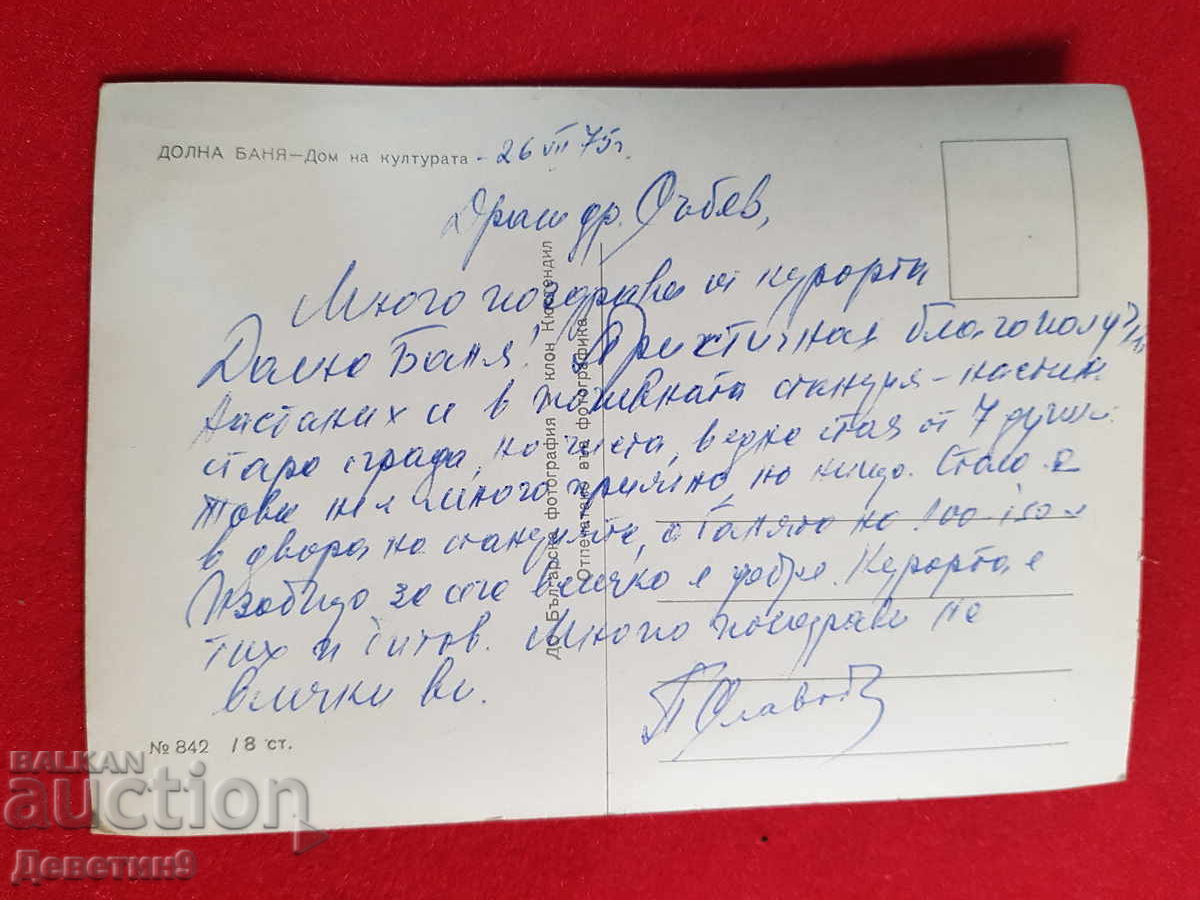 ДОЛНА БАНЯ—Дом на културата - 26 VII 75г.
Драги др. Събев,
Много поздрави от курорта
Долна Баня! Пристигнах благополуч
настаних се в почивната станция -
стара сграда, но чиста, в една стая от 7 души.
Това не е много приятно но нищо. Стола е
в двора на станцията, а банята на 100-150 м
Изобщо за сега всичко е добре. Курорта е
тих и . Много поздрави на
всички ви.
П Славов
ДП Българска фотография клон Кюстендил
Отпечатано във фотографика
№ 842 18 ст.
BALKAN
auction
Деветин9